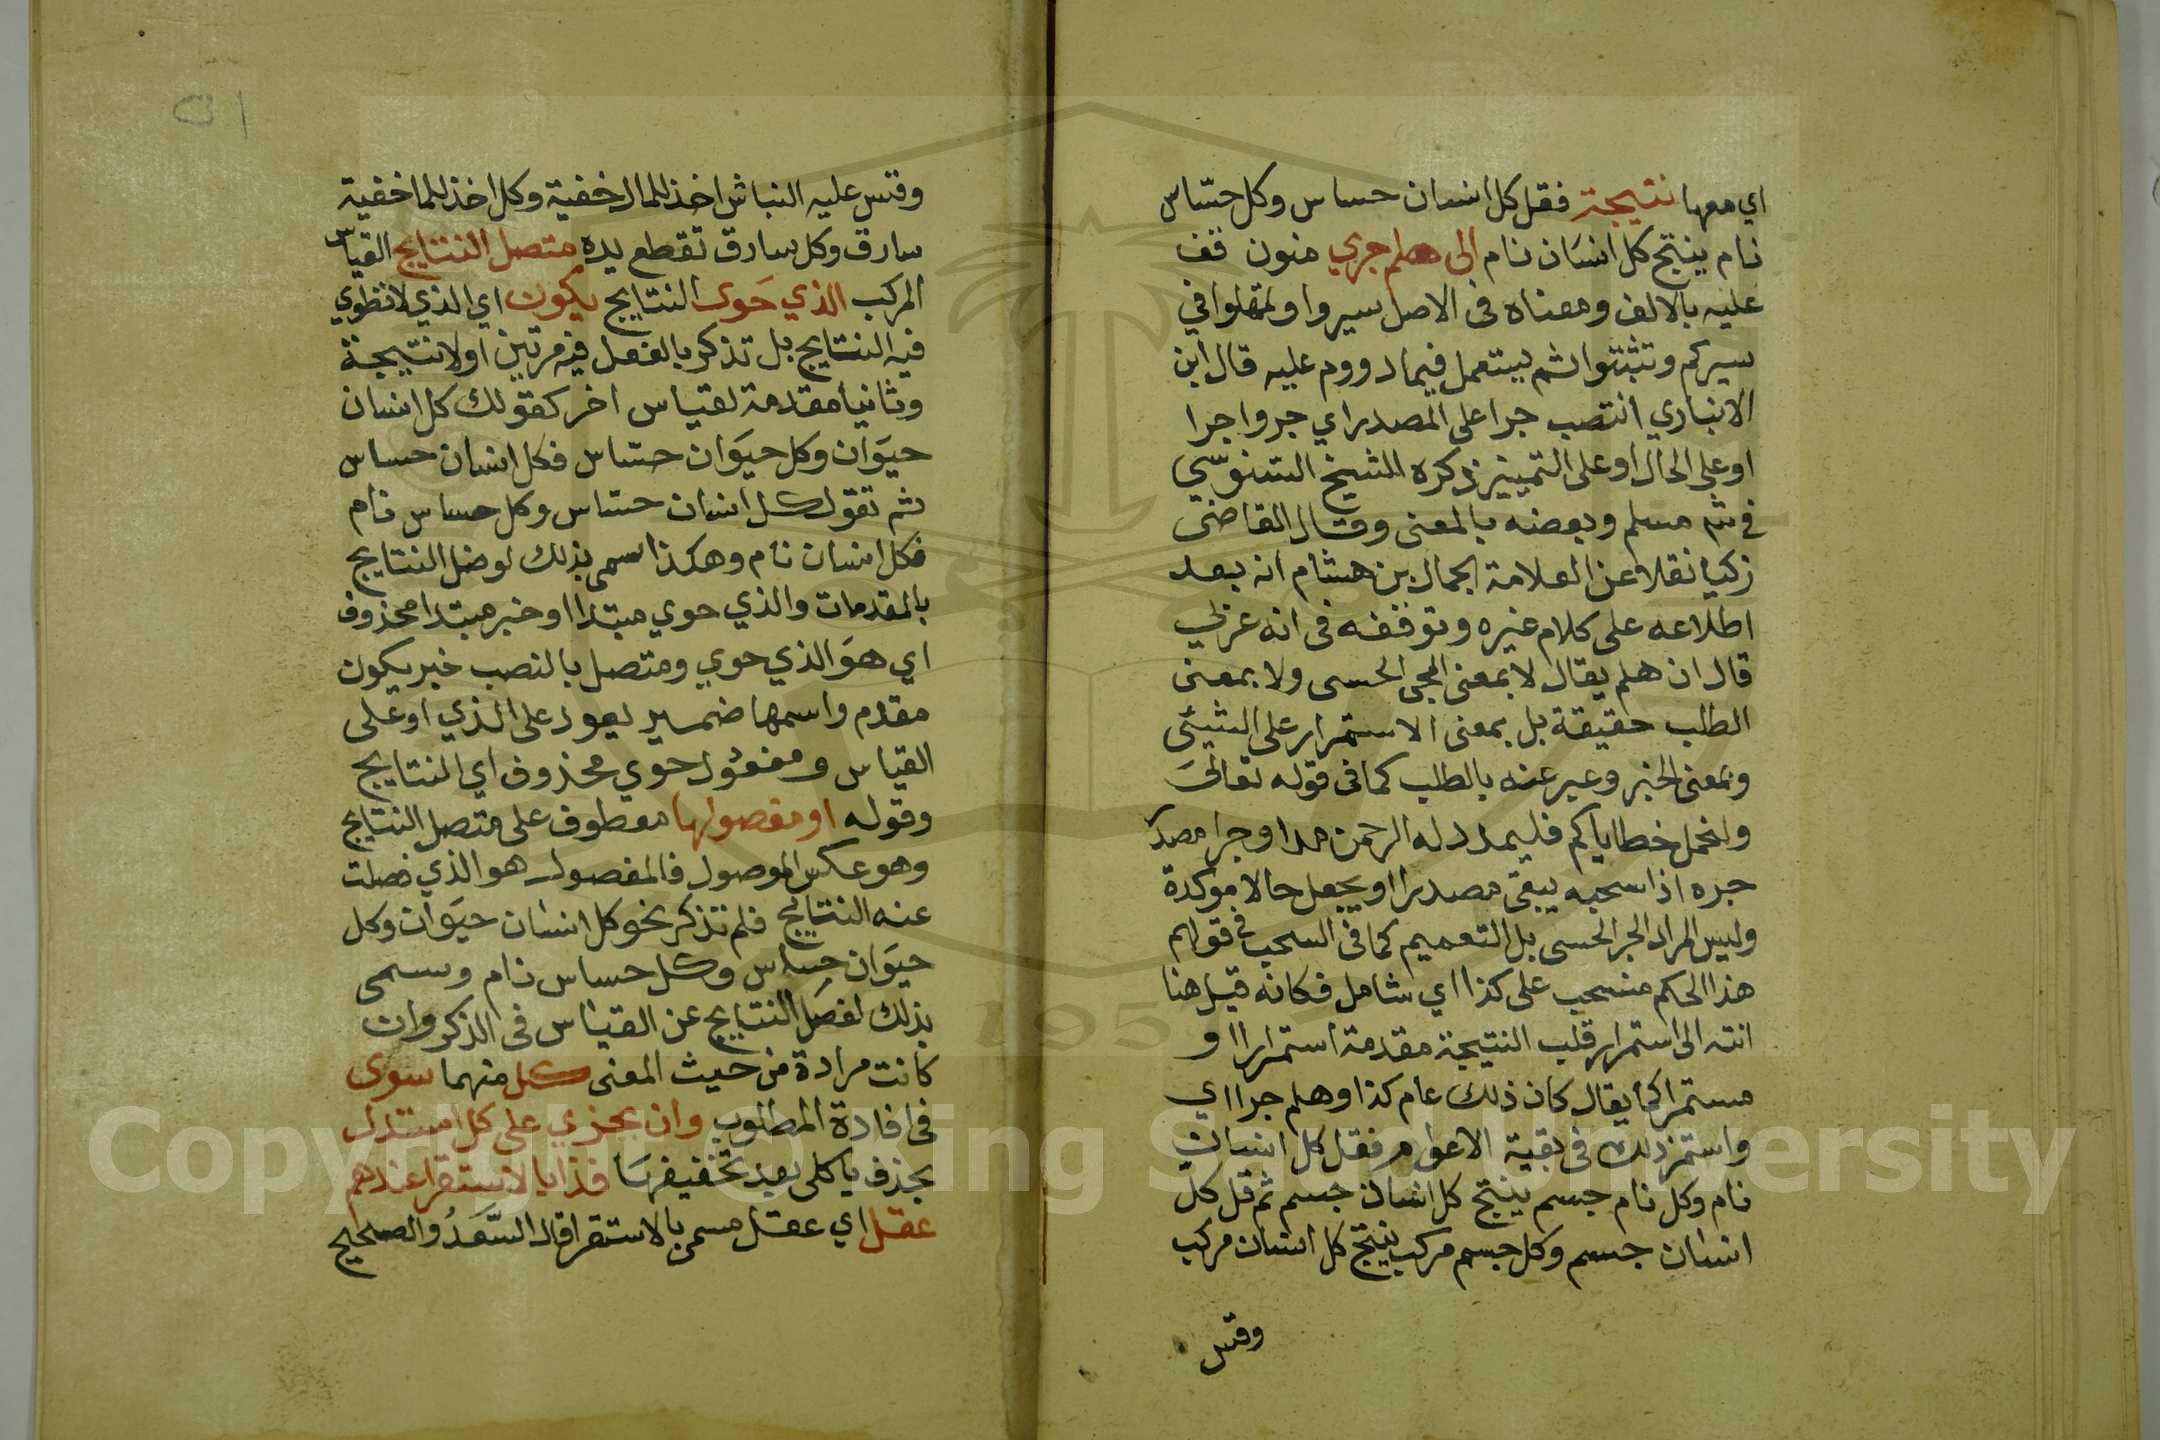 اي معها نتيجة فقل كل انسان حساس وكل حساس
نام ينتج كل انسان نام الى هلم جري منون قف
عليه بالالف ومعناه في الاصل سيروا وتمهلوا في
سيركم وتثبتوا ثم يستعمل فيما دووم عليه قال ابن
الانباري انتصب جرا على المصدر اي جروا جرا
او على الحال او على التمييز ذكره الشيخ السنوسي
في شم مسلم وبعضه بالمعنى وقال القاضي
زكريا نقلا عن العلامة الجمال بن هشام انه بعد
اطلاعه على كلام غيره وتوقفه في انه عربي
قال ان هلم يقال لا بمعنى المجي الحسى ولا بمعنى
الطلب حقيقة بل بمعنى الاستمرار على الشيئ
وبمعنى الخبر وعبر عنه بالطلب كما في قوله تعالى
ولنحمل خطاياكم فليمدد له الرحمن مدا وجرا مصدر
جره اذا سحبه يبقى مصدرا او يجعل حالا موكدة
وليس المراد الجر الحسى بل التعميم كما في السحب في قولهم
هذا الحكم منسحب على كذا اي شامل فكانه قيل هنا
انته الى استمرار قلب النتيجة مقدمة استمرارا او
مستمرا كما يقال كان ذلك عام كذا وهلم جرا اي
واستمر ذلك في بقية الاعوام فقل كل انسان
نام وكل نام جسم ينتج كل انسان جسم ثم قل كل
انسان جسم وكل جسم مركب ينتج كل انسان مركب
وقس
وقس عليه النباش اخذ للمال خفية وكل اخذ للما خفية
سارق وكل سارق تقطع يده متصل النتايج القياس
المركب الذي حوى النتايج يكون اي الذي لا تطوي
فيه النتايج بل تذكر بالفعل فيه مرتين اولا نتيجة
وثانيا مقدمة لقياس اخر كقولك كل انسان
حيوان وكل حيوان حساس فكل انسان حساس
ثم تقول كل انسان حساس وكل حساس نام
فكل انسان نام وهكذا سمى بذلك لوصل النتايج
بالمقدمات والذي حوي مبتدا او خبر مبتدا محذوف
اي هو الذي حوي ومتصل بالنصب خبر يكون
مقدم واسمها ضمير يعود على الذي او على
القياس ومفعول حوي محذوف اي النتايج
وقوله او مفصولها معطوف على متصل النتايج
وهو عكس الموصول فالمفصول هو الذي فصلت
عنه النتايج فلم تذكر نحو كل انسان حيوان وكل
حيوان حساس وكل حساس نام وسمى
بذلك لفصل النتايج عن القياس في الذكر وان
كانت مرادة من حيث المعنى كل منهما سوى
في افادة المطلوب وان بجزي على كل استدل
بحذف يا كلى بعد تخفيفها فذا بالاستقرا عندهم
عقل اي عقل مسمى بالاستقرا قال السعد والصحيح
Copyright © King Saud University